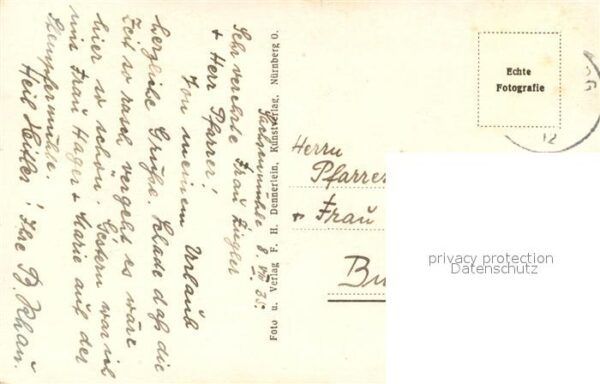 Sachsenmühle 8. VII 38.
Sehr verehrte Frau Ziegler
+ Herr Pfarrer!
Von meinem Urlaub
herzliche Grüße. Schade daß die
Zeit so rasch vergeht es wäre
hier so schön. Gestern war ich
mit Frau Hager + Marie auf der
Stempfermühle.
Heil Hitler! Ihre B.
Foto u. Verlag F. H. Dennerlein, Kunstverlag, Nürnberg O.
Echte
Fotografie
12
Herrn
Pfarrer
+ Frau
Bu
privacy protection
Datenschutz